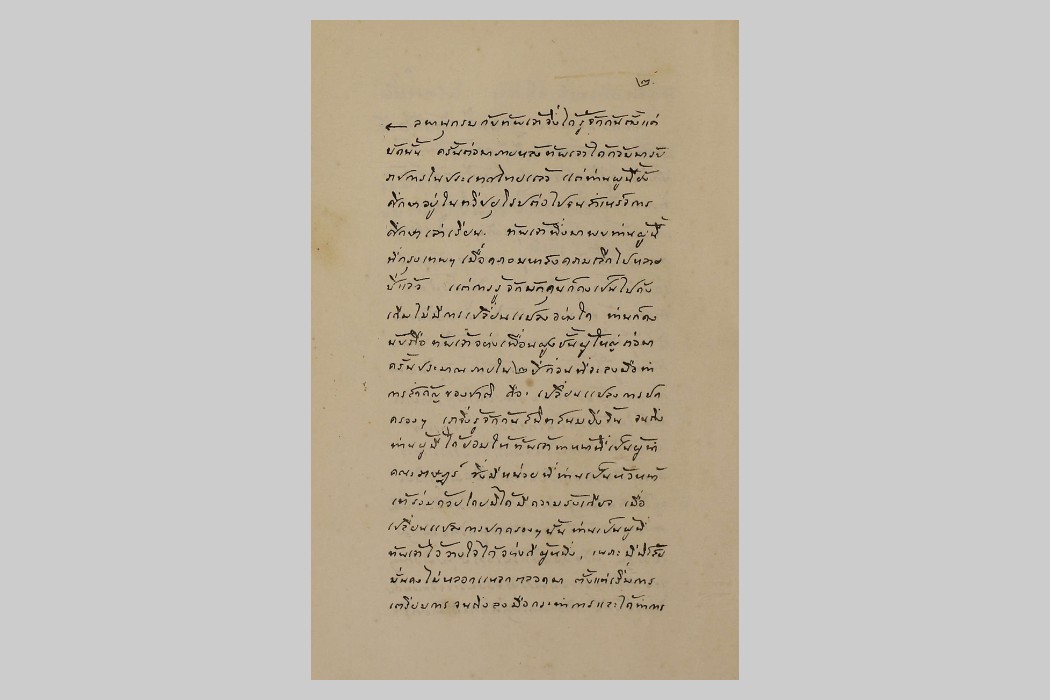 ๒.
ลพานุกรม กับข้าพเจ้าจึ่งได้รู้จักกันตั้งแต่
บัดนั้น ครั้นต่อมาภายหลังข้าพเจ้าได้กลับมารับ
ราชการในประเทศไทยแล้ว แต่ท่านผู้นี้ยัง
ศึกษาอยู่ในทวีปยุโรปต่อไปจนสำเหร็จการ
ศึกษาเล่าเรียน. ข้าพเจ้าพึ่งมาพบท่านผู้นี้
ที่กรุงเทพฯ เมื่อคราวมหาสงครามเลิกไปหลาย
ปีแล้ว แต่การรู้จักนักคุ้นก็คงเป็นไปดัง
เดิมไม่มีการเปลี่ยนแปลงอย่างใด ท่านก็คง
นับถือข้าพเจ้าอย่างเพื่อนฝูงชั้นผู้ใหญ่ ต่อมา
ครั้นประมาณภายใน ๒ ปีก่อนที่จะลงมือทำ
การสำคัญของชาติ คือ เปลี่ยนแปลงการปก
ครองฯ เราจึ่งรู้จักกันสนิทสนมยิ่งขึ้น จนถึง
ท่านผู้นี้ได้ยอมให้ข้าพเจ้าทำหน้าที่เป็นผู้นำ
คณะราษฎร์ ซึ่งมีหน่วยที่ท่านเป็นหัวหน้า
เข้าร่วมด้วยโดยมิได้มีความรังเกียจ เมื่อ
เปลี่ยนแปลงการปกครองฯ นั้น ท่านเป็นผู้ที่
ข้าพเจ้าไว้วางใจได้อย่างดีผู้หนึ่ง, เพราะมีนิสสัย
มั่นคงไม่หลอกแหลกตลอดมา ตั้งแต่เริ่มการ
เตรียมการจนถึงลงมือกระทำการและได้ทำการ